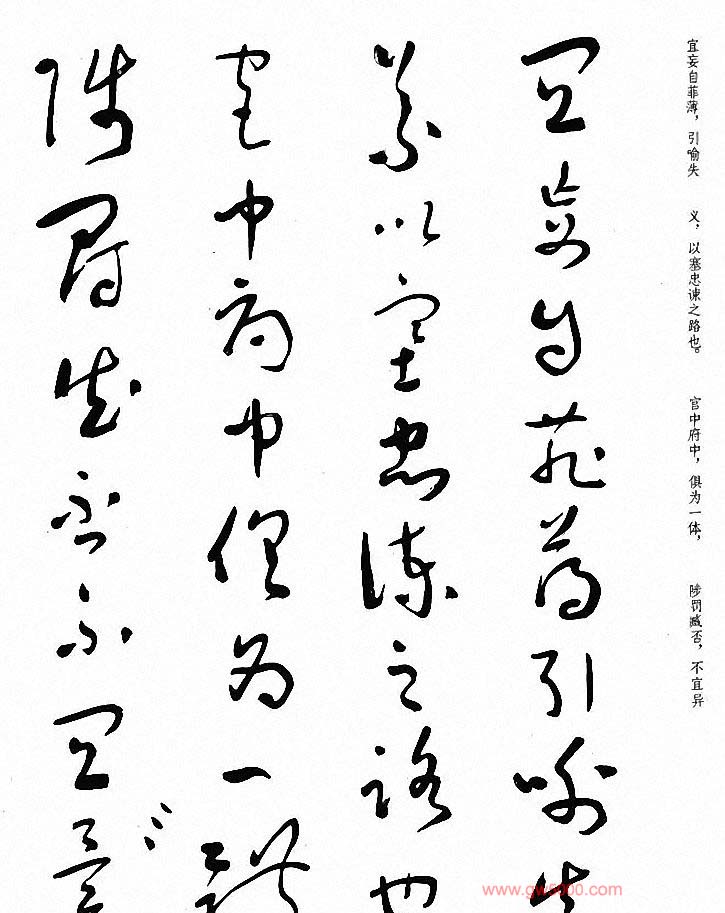 宜妄自菲薄，引喻失 义，以塞忠谏之路也。 官中府中，俱为一体， 陟罚臧否，不宜异
宜妄自菲薄引喻失
義以塞忠諫之路也
宮中府中俱為一體
陟罰臧否不宜異